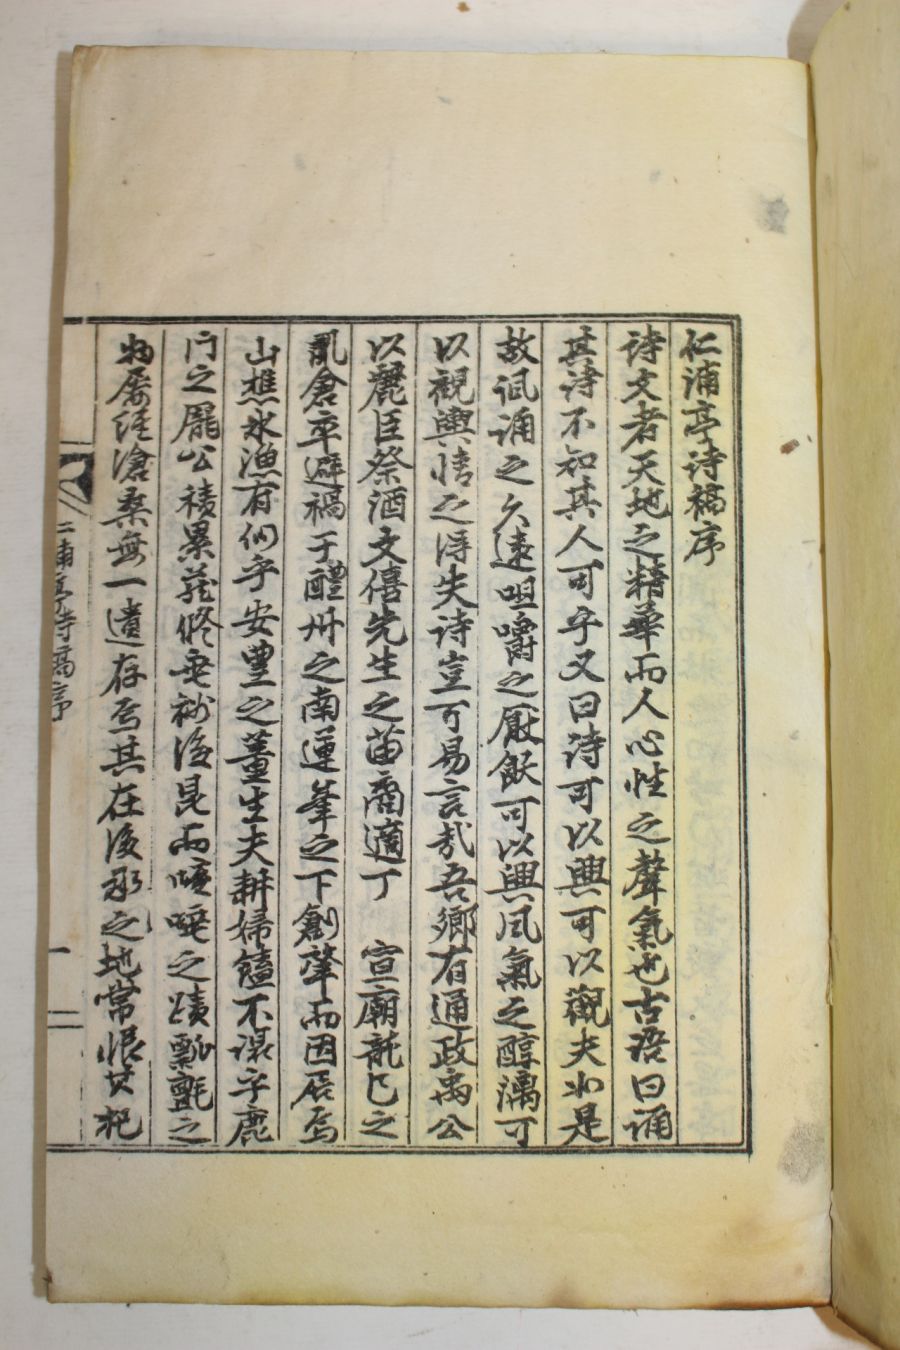 仁浦亭詩稿序
詩文者天地之精華而人心性之聲氣也古語曰誦
其詩不知其人可乎又曰詩可以興可以觀夫如是
故諷誦之久遠咀嚼之厭飫可以興風氣之醇漓可
以觀輿情之得失詩豈可易言哉吾鄉有通政禹公
以麗臣祭酒文僖先生之苗裔適丁 宣廟龍巳之
亂倉卒避禍于醴州之南蓮峯之下創肇而因居焉
山樵水漁有似乎安豊之董生夫耕婦饁不讓乎鹿
門之龐公積累養修垂裕後昆而咳唾之蹟瓢氈之
物屢經滄桑無一遺存焉其在後承之地常恨其杞
仁浦亭詩稿序
一